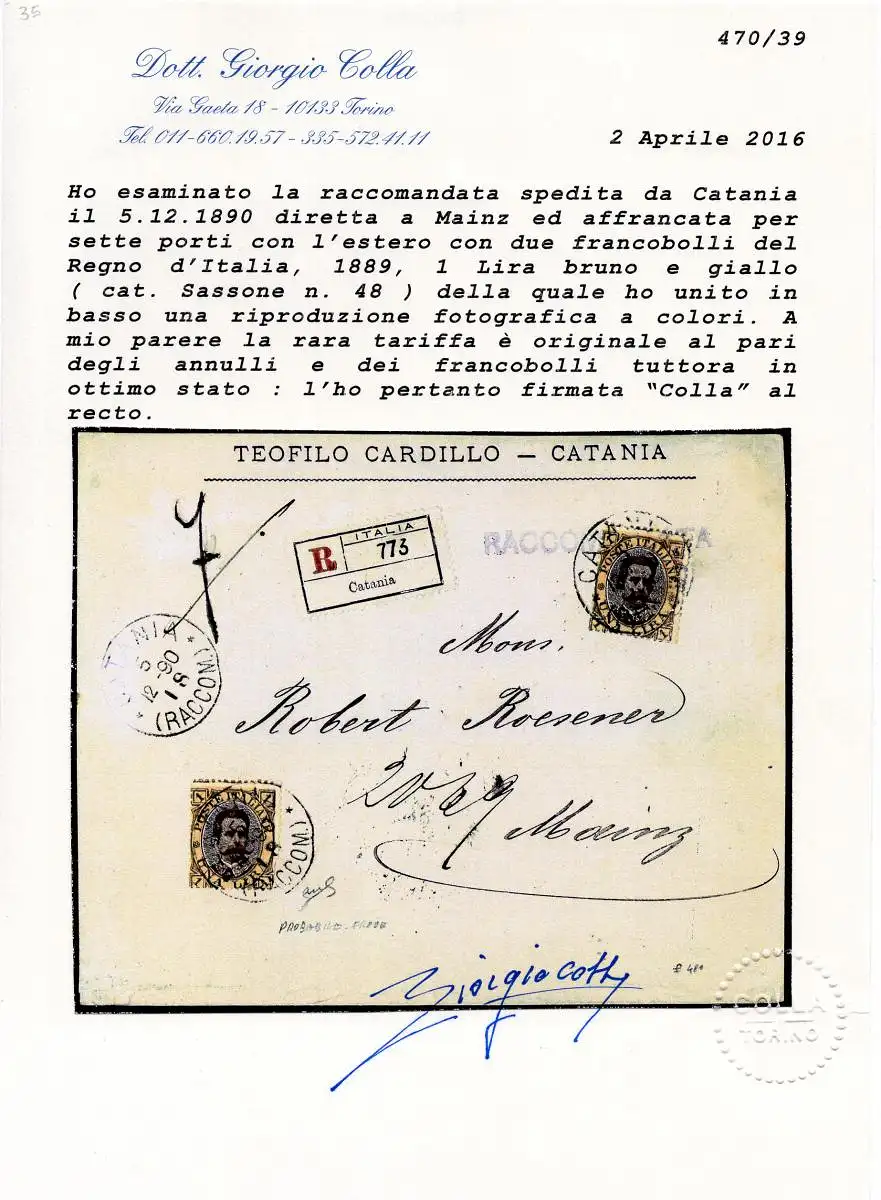 35
470/39
Dott. Giorgio Colla
Via Gaeta 18 - 10133 Torino
Tel. 011-660.19.57 - 335-572.41.11
2 Aprile 2016
Ho esaminato la raccomandata spedita da Catania
il 5.12.1890 diretta a Mainz ed affrancata per
sette porti con l'estero con due francobolli del
Regno d'Italia, 1889, 1 Lira bruno e giallo
( cat. Sassone n. 48 ) della quale ho unito in
basso una riproduzione fotografica a colori. A
mio parere la rara tariffa è originale al pari
degli annulli e dei francobolli tuttora in
ottimo stato : l'ho pertanto firmata "Colla" al
recto.
TEOFILO CARDILLO — CATANIA
7
ITALIA
R 773
Catania
POSTE ITALIANE
UNA LIRA
Mons.
CATANIA
5
12-90
1 S
(RACCOM.)
Robert Roesener
Mainz
1 POSTE ITALIANE 1
UNA LIRA
(RACCOM.)
Giorgio Colla
COLLA
TORINO